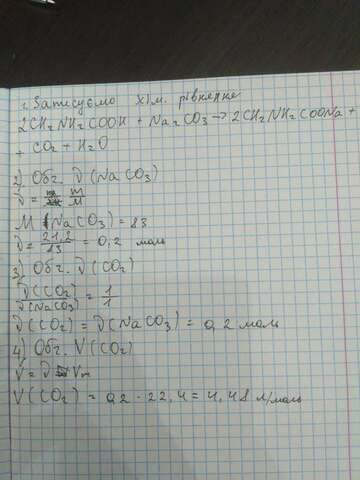 1. Записуємо хім. рівняння
2CH2NH2COOH + Na2CO3 → 2CH2NH2COONa +
+ CO2 + H2O
2) Обч. ν(NaCO3)
ν = m/M
M (NaCO3) = 83
ν = 21,2/83 = 0,2 моль
3) Обч. ν(CO2)
ν(CO2)/ν(NaCO3) = 1/1
ν(CO2) = ν(NaCO3) = 0,2 моль
4) Обч. V(CO2)
V = ν Vm
V(CO2) = 0,2 · 22,4 = 4,48 л/моль